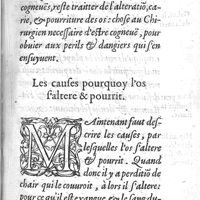 cogneuës, reste traitter de l'alteratiõ, ca-
rie, & pourriture des os: chose au Chi-
rurgien necessaire d'estre cogneuë, pour
obuier aux perils & dangiers qui s'en
ensuyuent.
Les causes pourquoy l'os
s'altere & pourrit.
MAintenant faut des-
crire les causes, par
lesquelles l'os s'altere
& pourrit. Quand
donc il y a perditiõ de
chair qui le couuroit, alors il s'altere:
pour ce qu'il est exangue, & le sang du-